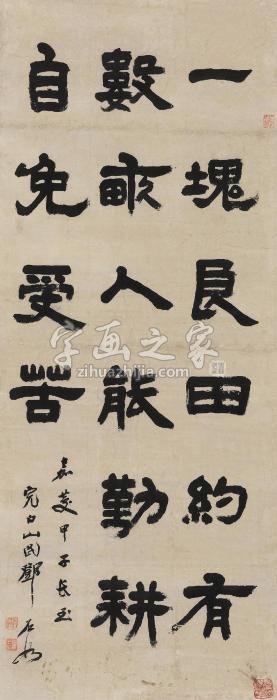 一塊良田約有
數畝人能勤耕
自免受苦
嘉慶甲子長至
完白山民鄧石如
字画之家
zihuazhijia.com